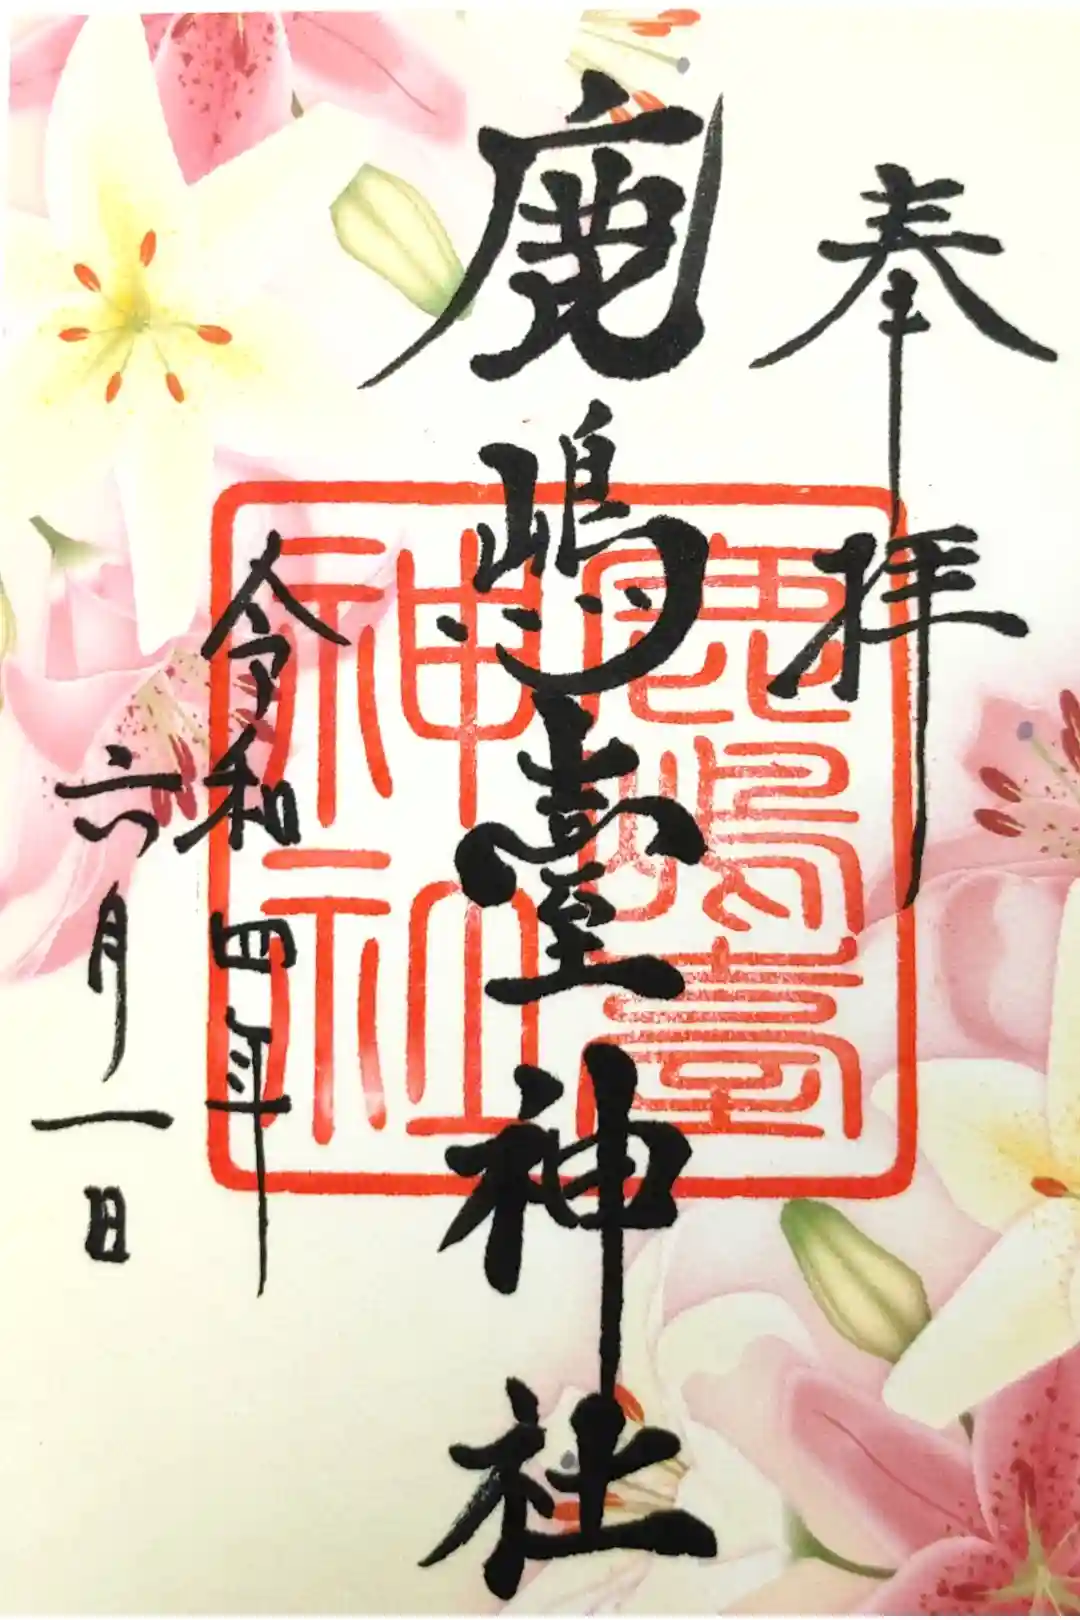 奉拝
鹿嶋臺神社
令和四年
六月一日
鹿嶋臺
神社